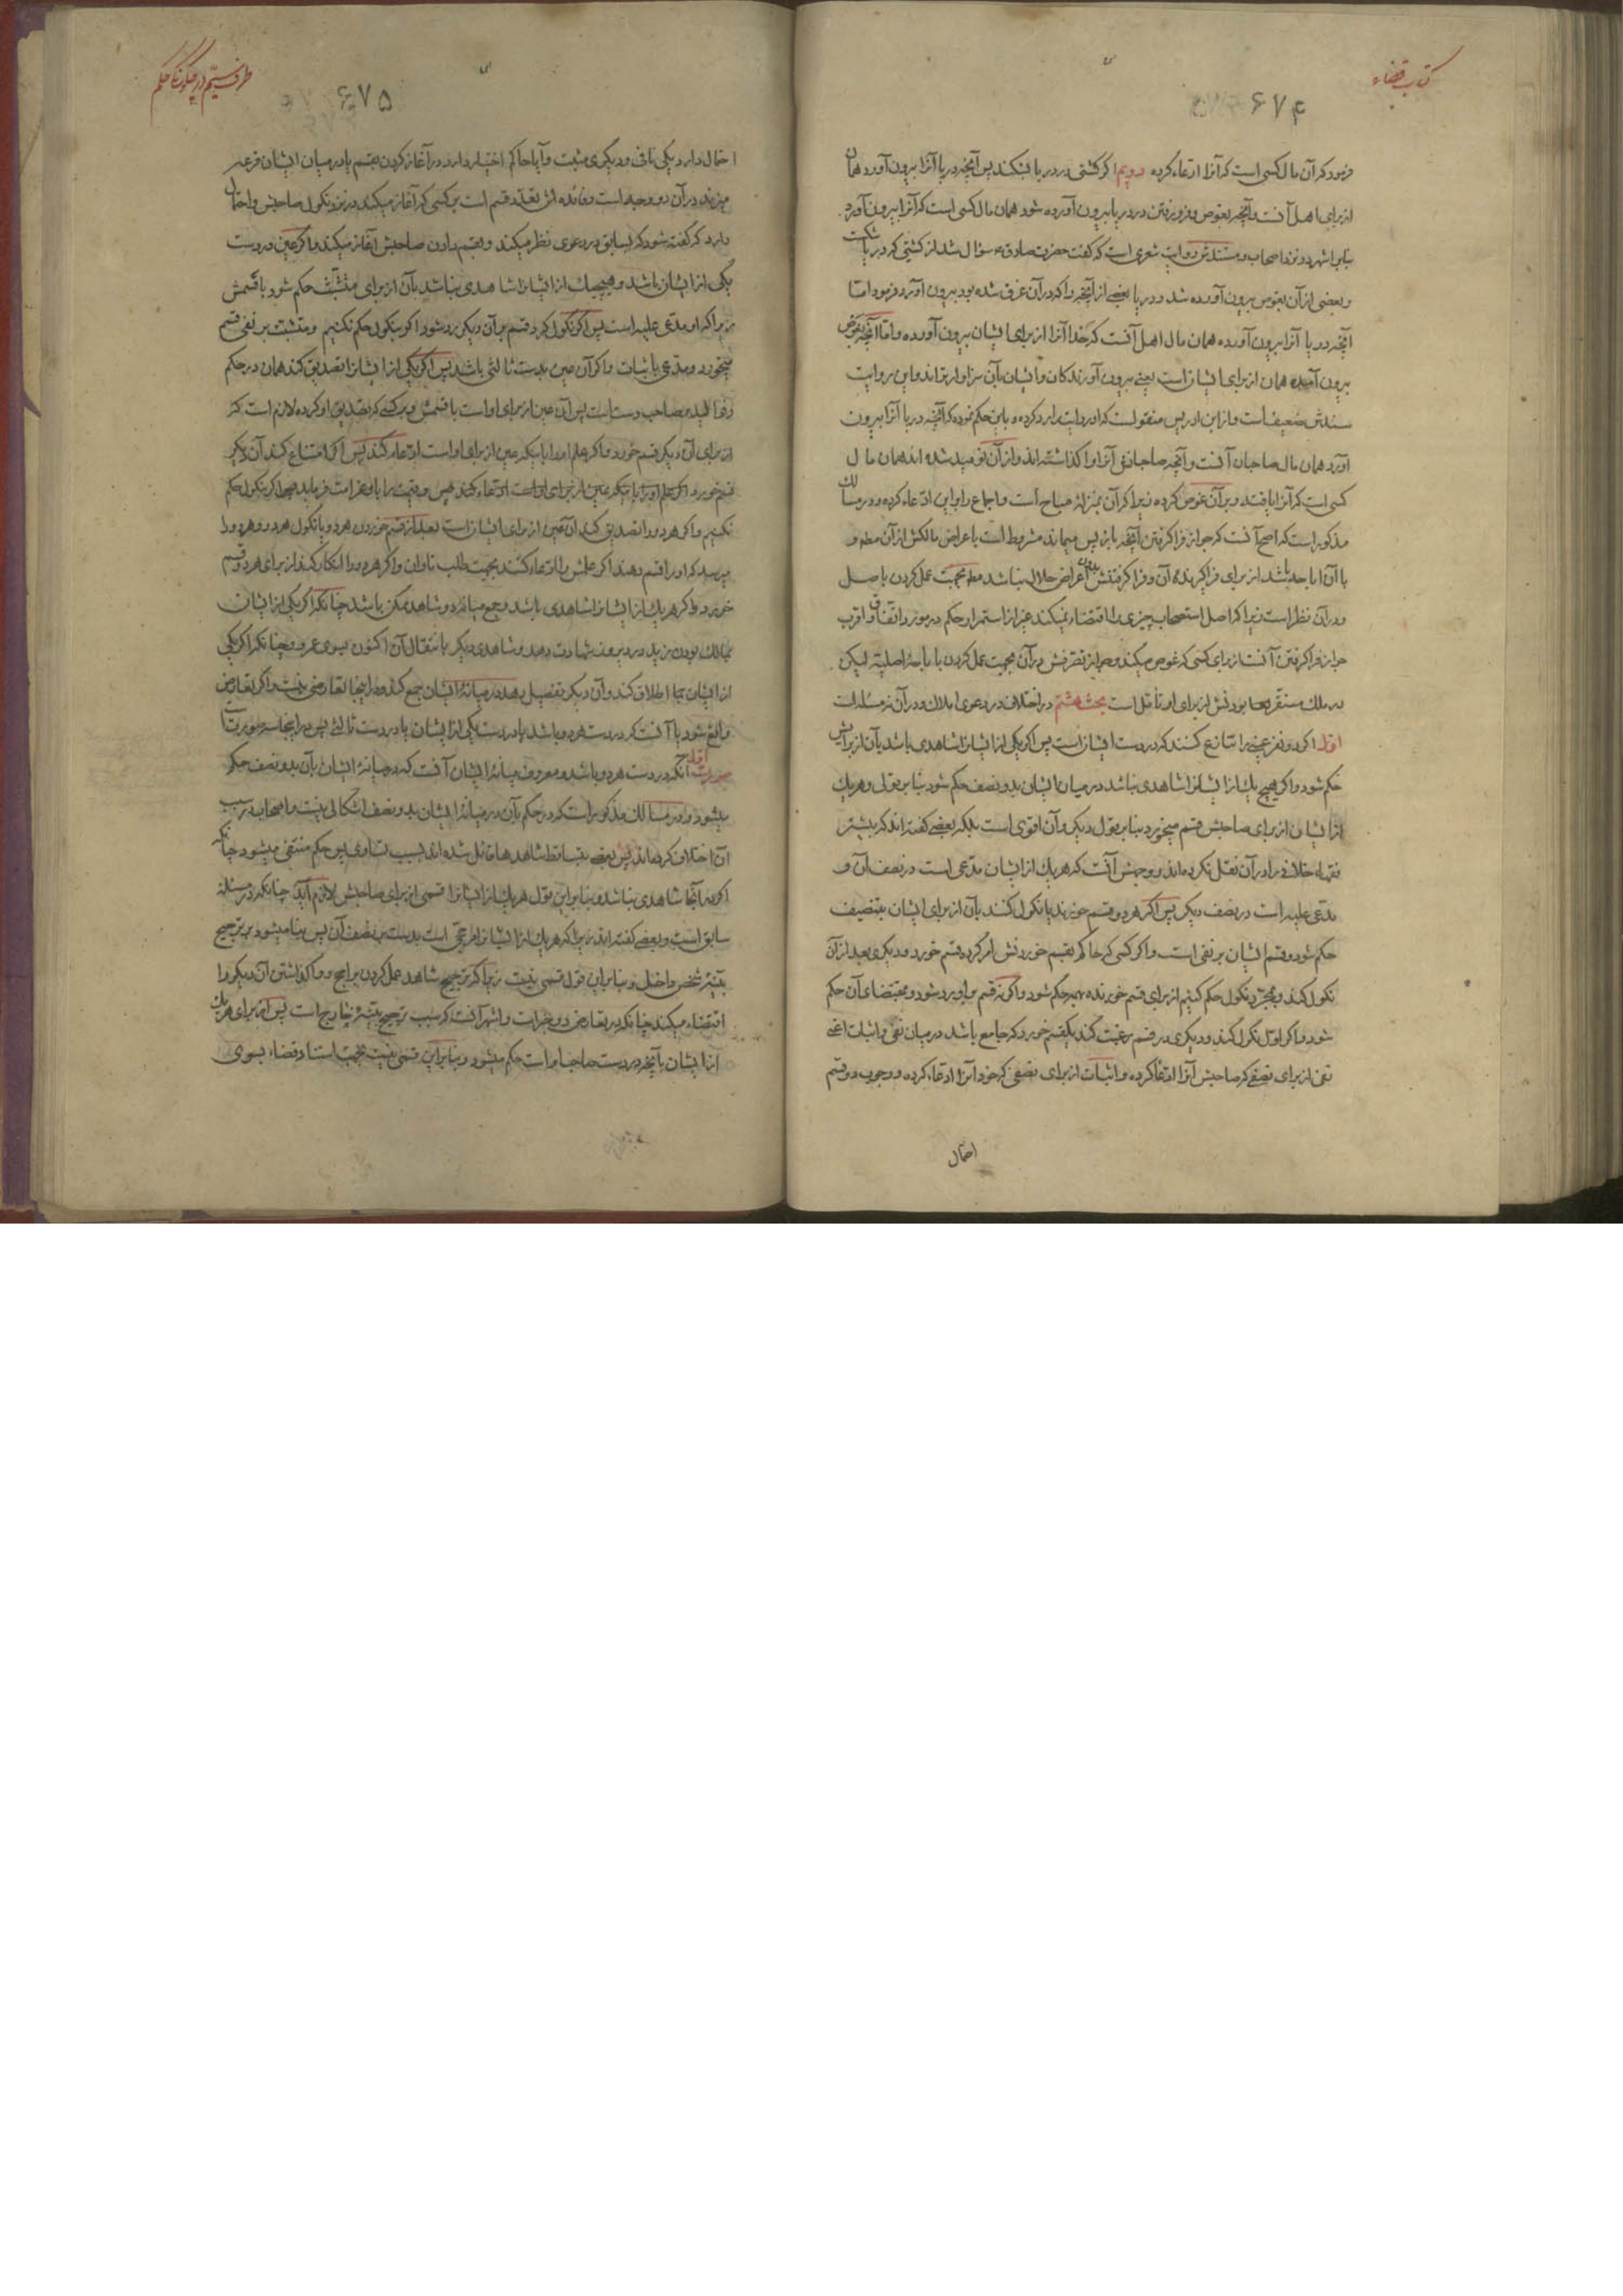 کتاب قضاء
۶۷۴
فرمود که آن مال کسی است که آنرا ادعاء کرده دویم اگر کشتی در دریا بشکند پس آنچه دریا آنرا بیرون آورد همان
از برای اهل آنست و آنچه بغوص و فرو رفتن در دریا بیرون آورده شود همان مال کسی است که آنرا بیرون آورد
بنابر اشهر در نزد اصحاب و مستندش روایت شعری است که گفت حضرت صادق ع سؤال شد از کشتی که در دریا شکست
و بعضی از آن بغوص بیرون آورده شد و دریا بعضی از آنچه را که در آن غرق شده بود بیرون آورد فرمود اما
آنچه دریا آنرا بیرون آورده همان مال اهل آنست که خدا آنرا از برای ایشان بیرون آورده و اما آنچه بغوص
بیرون آمده همان از برای ایشان است یعنی بیرون آورندگان و ایشان بآن سزاوارترند و این روایت
سندش ضعیف است و از ابن ادریس منقولست که او روایت را رد کرده و باین حکم نموده که آنچه دریا آنرا بیرون
آورد همان مال صاحبان آنست و آنچه صاحبانش آنرا وا گذاشته اند و از آن نومید شده اند همان مال
کسی است که آنرا یافته و بر آن غوص کرده زیرا که آن بمنزلهٔ مباح است و اجماع را بر این ادعاء کرده و در مسالک
مذکور است که اصح آنست که جواز فرا گرفتن آنچه باز پس میماند مشروط است باعراض مالکش از آن مطلقا و
با آن اباحه باشد از برای فرا گیرنده آن و فرا گرفتنش بدون اعراض حلال نباشد مطلقا بجهت عمل کردن باصل
و در آن نظر است زیرا که اصل استصحاب چیزی را اقتضاء نمیکند غیر از استمرار حکم در مورد اتفاق و اقرب
جواز فرا گرفتن آنست از برای کسی که غوص میکند و جواز تصرفش در آن بجهت عمل کردن باباحهٔ اصلیه لیکن
در ملک مستقر بودنش از برای او تأمل است بحث هشتم در اختلاف در دعوی املاک و در آن نه مسئله است
اول اگر دو نفر عینی را تنازع کنند که در دست ایشان است پس اگر یکی از ایشانرا شاهدی باشد بآن از برایش
حکم شود و اگر هیچ یک از ایشانرا شاهدی نباشد در میان ایشان بدو نصف حکم شود بنابر قولی و هر یک
از ایشان از برای صاحبش قسم میخورد بنابر قول دیگر و آن اقوی است بلکه بعضی گفته اند که بیشتر
فقهاء خلافی را در آن نقل نکرده اند و وجهش آنست که هر یک از ایشان مدعی است در نصف آن و
مدعی علیه است در نصف دیگر پس اگر هر دو قسم خورند یا نکول کنند بآن از برای ایشان بتنصیف
حکم شود و قسم ایشان بر نفی است و اگر کسی که حاکم بقسم خوردنش امر کرده قسم خورد و دیگری بعد از آن
نکول کند و بمجرد نکول حکم کنیم از برای قسم خورنده بهمه حکم شود و اگر نه قسم بر او رد شود و بمقتضای آن حکم
شود و اگر اول نکول کند و دیگری در قسم رغبت کند یکقسم خورد که جامع باشد در میان نفی و اثبات اعنی
نفی از برای نصفی که صاحبش آنرا ادعا کرده و اثبات از برای نصفی که خود آنرا ادعاء کرده و وجوب دو قسم
احتمال
طرف سیم در چگونگی حکم
۶۷۵
احتمال دارد یکی نافی و دیگری مثبت و آیا حاکم اختیار دارد در آغاز کردن بقسم یا در میان ایشان قرعه
میزند در آن دو وجه است و فائده اش تعدد قسم است بر کسی که آغاز میکند در نزد نکول صاحبش و احتمال
دارد که گفته شود که بسابق در دعوی نظر میکند و بقسم دادن صاحبش آغاز میکند و اگر عین در دست
یکی از ایشان باشد و هیچیک از ایشانرا شاهدی نباشد بآن از برای متشبث حکم شود با قسمش
زیرا که او مدعی علیه است پس اگر نکول کرد قسم بر آن دیگر رد شود اگر بنکول حکم نکنیم و متشبث بر نفی قسم
میخورد و مدعی باثبات و اگر آن عین بدست ثالثی باشد پس اگر یکی از ایشانرا تصدیق کند همان در حکم
ذوالید و صاحب دست است پس آن عین از برای او است با قسمش و بر کسی که تصدیق او کرده لازم است که
از برای آن دیگر قسم خورد و اگر علم او را باینکه عین از برای او است ادعاء کند پس اگر امتناع کند آن دیگر
قسم خورد
نکنیم و اگر هر دو را تصدیق کند آن عین از برای ایشان است بعد از قسم خوردن هر دو یا نکول هر دو و هر دو را
میرسد که او را قسم دهند اگر علمش را ادعاء کنند بجهت طلب تاوان و اگر هر دو را انکار کند از برای هر دو قسم
خورد و اگر هر یک از ایشانرا شاهدی باشد و جمع میانهٔ دو شاهد ممکن باشد چنانکه اگر یکی از ایشان
بمالک بودن زید در دیروز شهادت دهد و شاهدی دیگر بانتقال آن اکنون بسوی عمرو و چنانکه اگر یکی
از ایشان اطلاق کند و آن دیگر تفصیل دهد در میانهٔ ایشان جمع کند و در اینجا تعارضی نیست و اگر تعارض
واقع شود یا آنست که در دست هر دو باشد یا در دست یکی از ایشان یا در دست ثالثی پس در اینجا سه صورتست
صورت اول آنکه در دست هر دو باشد و معروف میانهٔ ایشان آنست که در میانهٔ ایشان بآن بدو نصف حکم
میشود و در مسالک مذکور است که در حکم بآن در میانهٔ ایشان بدو نصف اشکالی نیست و اصحاب در سبب
آن اختلاف کرده اند پس بعضی بتساقط شاهدها قائل شده اند بسبب تساوی پس حکم منتفی میشود چنانکه
اگر در آنجا شاهدی نباشد و بنابر این قول هر یک از ایشانرا قسمی از برای صاحبش لازم آید چنانکه در مسئلهٔ
سابق است و بعضی گفته اند زیرا که هر یک از ایشانرا مرجحی است بدست بر نصف آن پس بنا میشود بر ترجیح
بینهٔ شخص داخل و بنابر این قول قسمی نیست زیرا که ترجیح شاهد عمل کردن براجح و وا گذاشتن آن دیگر را
اقتضاء میکند چنانکه در تعارض دو خبر است و اشهر آنست که سبب ترجیح بینهٔ خارج است پس از برای هر یک
از ایشان بآنچه در دست صاحب او است حکم میشود و بنابر این قسمی نیست بجهت استناد قضاء بسوی